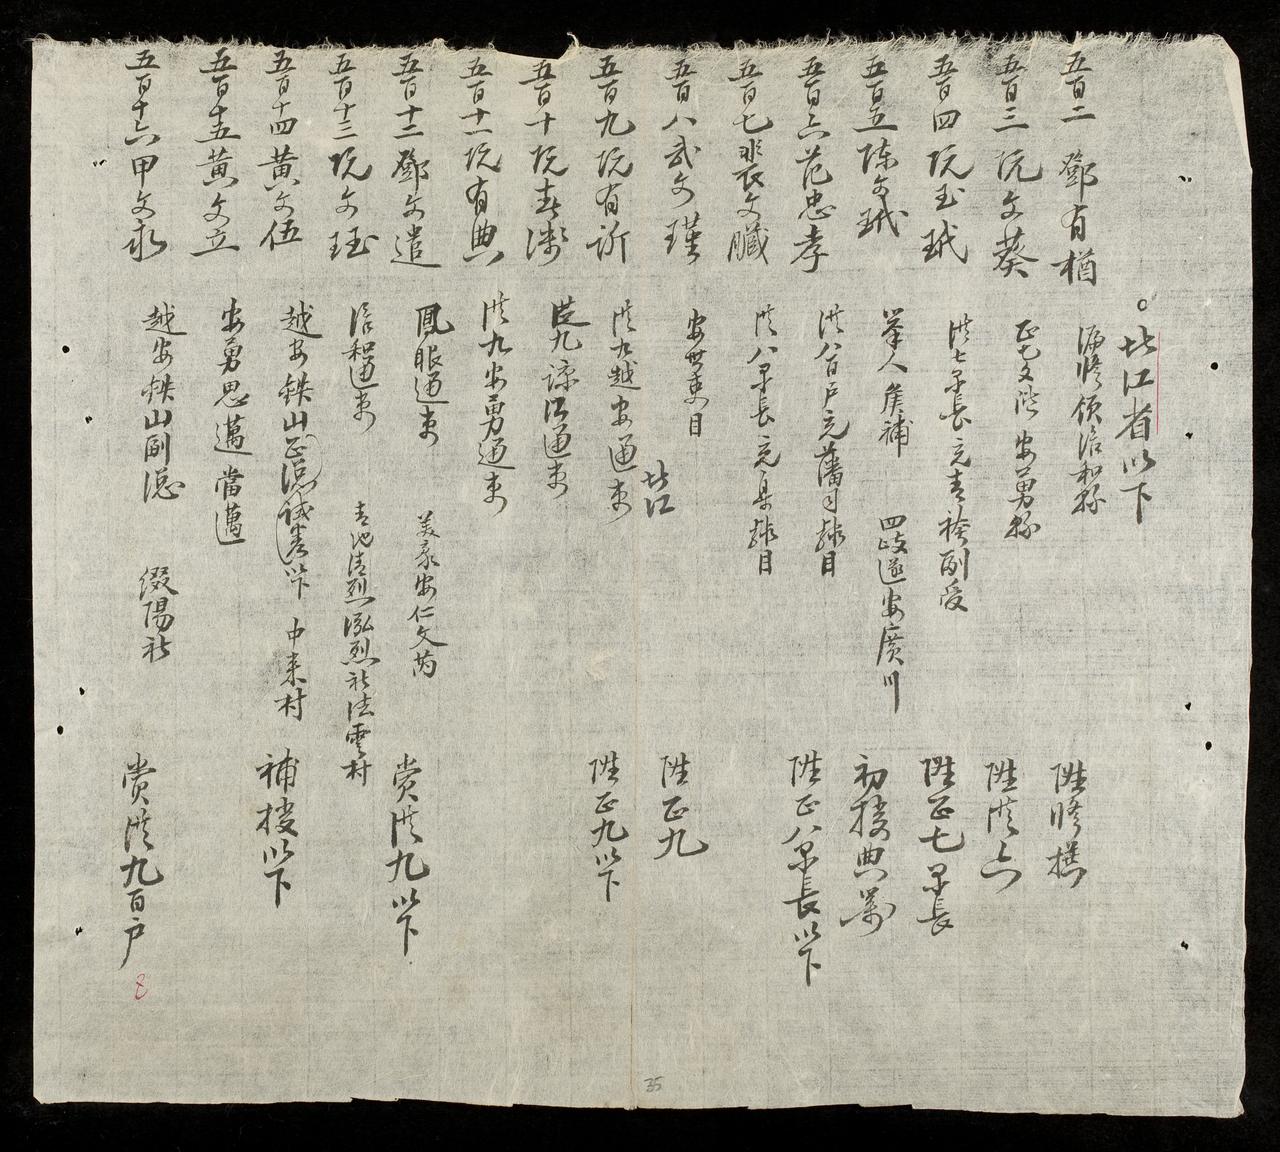 北江省以下
五百二 鄧有楢 領 和縣 陞修撰
五百三 阮文葵 安勇縣 陞洪六
五百四 阮玉珴 洪七 長 充 副 陞正七 長
五百五 陳文珴 舉人 候補 四岐遂安廣川 初授典簿
五百六 范忠孝 洪八百戶充藩司 目 陞正八 長以下
五百七 裴文臟 洪八 長充臬 目
五百八 武文瑾 安世吏目 陞正九
北江
五百九 阮有訢 洪九越安通吏 陞正九以下
五百十 阮春 從九諒江通吏
五百十一 阮有典 洪九安勇通吏
五百十二 鄧文遣 鳳眼通吏 美豪安仁文芮 賞洪九以下
五百十三 阮文珏 和通吏 青池清烈泓烈社法雲村
五百十四 黃文伍 越安鉄山正 誠 以下 中來村 補授以下
五百十五 黃文立 安勇思邁 當邁
五百十六 甲文永 越安鉄山副總 綴陽社 賞洪九百戶
8
35